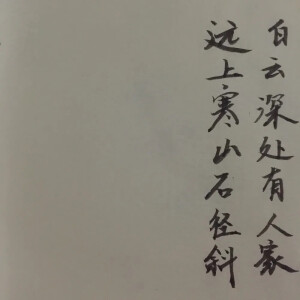 白云深处有人家
远上寒山石径斜